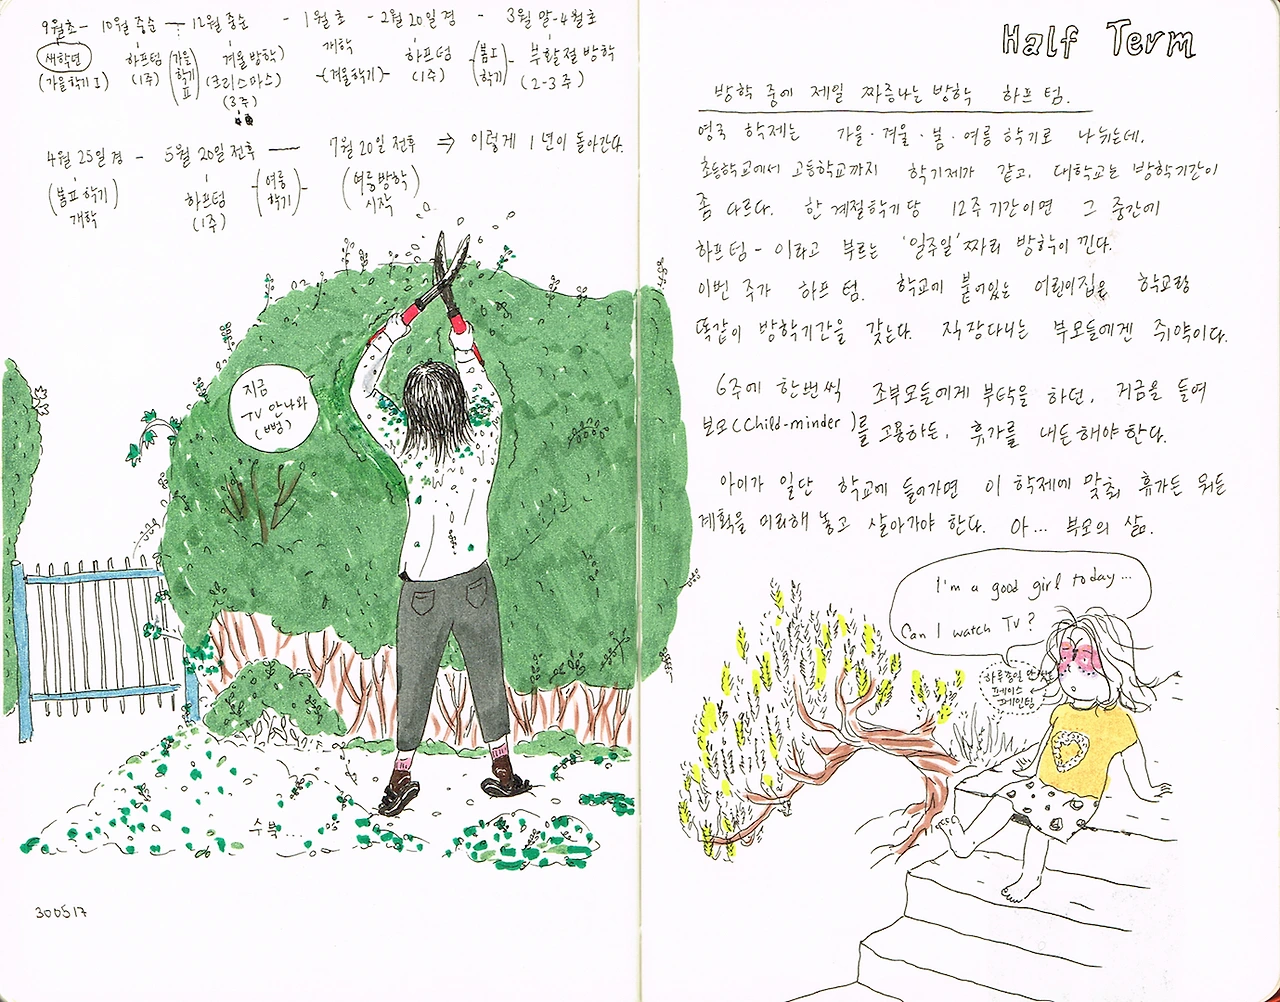 9월초 - 10월 중순 - 12월 중순 - 1월 초 - 2월 20일 경 - 3월 말-4월초
새학년 하프텀 (가을학기 II) 겨울방학 개학 하프텀 (봄I학기) 부활절 방학
(가을학기 I) (1주) (크리스마스) (겨울학기) (1주) (2-3주)
(3주)
4월 25일경 - 5월 20일 전후 — 7월 20일 전후 ⇒ 이렇게 1년이 돌아간다.
(봄II 학기) 하프텀 (여름학기) (여름방학 시작)
개학 (1주)
지금
TV 안나와
(뻥)
수북...
300517
Half Term
방학 중에 제일 짜증나는 방학 하프 텀.
영국 학제는 가을·겨울·봄·여름 학기로 나뉘는데,
초등학교에서 고등학교까지 학기제가 같고, 대학교는 방학기간이
좀 다르다. 한 계절학기당 12주 기간이면 그 중간에
하프텀 - 이라고 부르는 '일주일'짜리 방학이 낀다.
이번 주가 하프 텀. 학교에 붙어있는 어린이집은 학교랑
똑같이 방학기간을 갖는다. 직장다니는 부모들에겐 쥐약이다.
6주에 한번씩 조부모들에게 부탁을 하던, 거금을 들여
보모(Child-minder)를 고용하든, 휴가를 내든 해야 한다.
아이가 일단 학교에 들어가면 이 학제에 맞춰 휴가든 뭐든
계획을 미리해 놓고 살아가야 한다. 아... 부모의 삶.
I'm a good girl today...
Can I watch TV?
하루종일 안씻는
페이스
페인팅